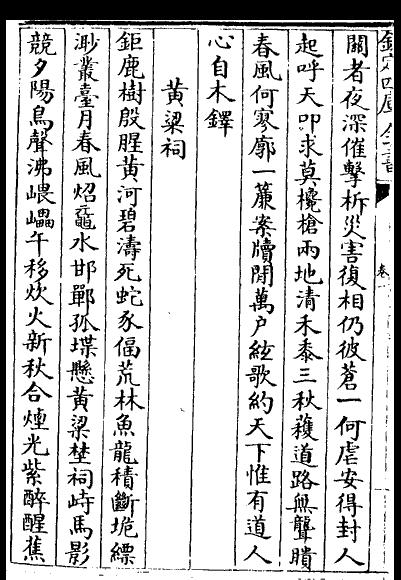 欽定四庫全書
卷
關者夜深催擊柝災害復相仍彼蒼一何虐安得封人
起呼天叩求莫欃槍兩地清禾黍三秋穫道路無聾瞶
春風何寥廓一簾案牘閒萬户絃歌約天下惟有道人
心自木鐸
黄粱祠
鉅鹿樹殷腥黄河碧濤死蛇豕偪荒林魚龍積斷垝縹
渺叢臺月春風炤鼀水邯鄲孤堞懸黄粱埜祠峙馬影
競夕陽鳥聲沸嵔㠥午移炊火新秋合煙光紫醉醒蕉